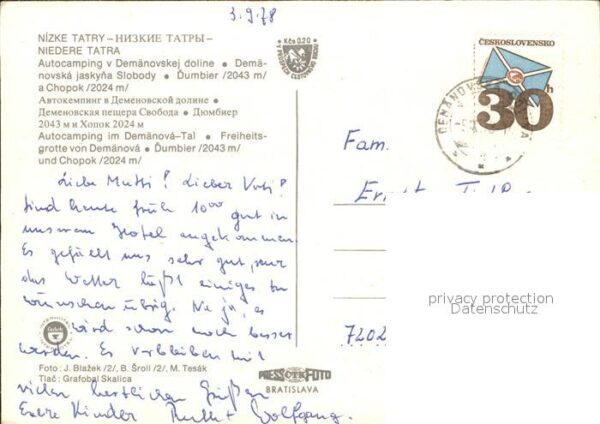 3.9.78
NÍZKE TATRY – НИЗКИЕ ТАТРЫ –
NIEDERE TATRA
Autocamping v Demänovskej doline • Demä-
novská jaskyňa Slobody • Ďumbier /2043 m/
a Chopok /2024 m/
Автокемпинг в Деменовской долине •
Деменовская пещера Свобода • Дюмбиер
2043 м и Хопок 2024 м
Autocamping im Demänová-Tal • Freiheits-
grotte von Demänová • Ďumbier /2043 m/
und Chopok /2024 m/
Kčs 0,20
ČESKOSLOVENSKO
30h
Liebe Mutti! Lieber Vati!
Sind heute früh 10⁰⁰ gut in
unserem Hotel angekommen.
Es gefällt uns sehr gut, nur
das Wetter läßt einiges zu
wünschen übrig. Na ja, es
wird schon noch besser
werden. Es verbleiben mit
vielen herzlichen Grüßen
Eure Kinder Wolfgang.
Fam.
Ernst
7202
privacy protection
Datenschutz
Foto: J. Blažek /2/, B. Šroll /2/, M. Tesák
Tlač: Grafobal Skalica
PRESSFOTO
BRATISLAVA